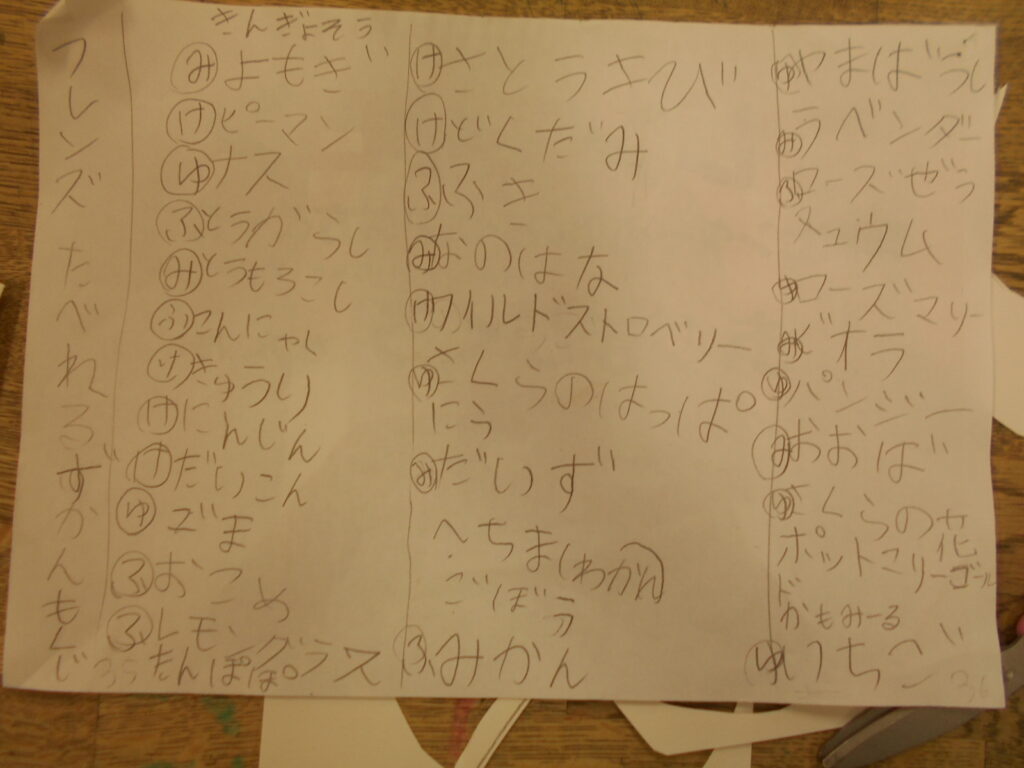 フレンズたべれるずかんもくじ
きんぎょそう
み よもぎ
け ピーマン
ゆ ナス
ふ とうがらし
み とうもろこし
ふ こんにゃく
け きゅうり
け にんじん
け だいこん
ゆ ごま
ふ おこめ
ふ レモングラス
たんぽぽ
35
け さとうきび
け どくだみ
ふ ふき
み なのはな
け ワイルドストロベリー
ゆ さくらのはっぱ
にら
み だいず
へちま(わかん)
ごぼう
ふ みかん
ゆ やまばうし
み ラベンダー
ふ ローズぜら
ヌュウム
ローズマリー
み ビオラ
ゆ パンジー
み おおば
ゆ さくらの花
ポットマリーゴール
ド
かもみーる
ゆ いちご
36